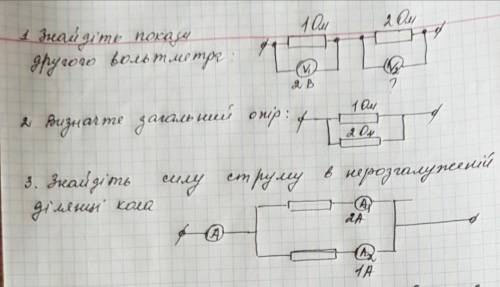 1 Знайдіть показу
другого вольтметра:
1 Ом
2 Ом
V₁
V₂
2 В
?
2 Визначте загальний опір:
1 Ом
2 Ом
3. Знайдіть силу струму в нерозгалуженій
ділянці кола
A
A₁
2A
A₂
1A